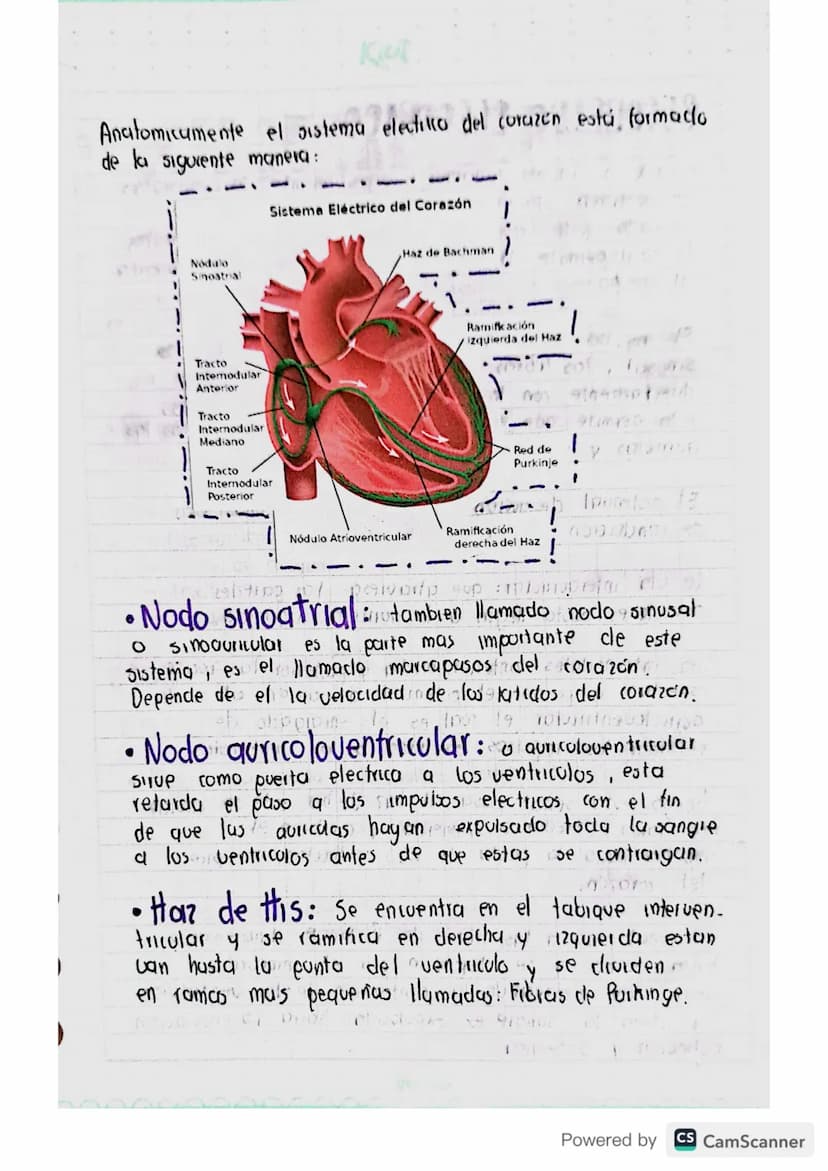 Anatomicamente el sistema electrico del corazón está formado
de la siguiente manera:
Sistema Eléctrico del Corazón
Nódulo
Sinoatrial
Haz de Bachman
Ramificación
izquierda del Haz
Tracto
Internodular
Anterior
Tracto
Internodular
Mediano
Tracto
Internodular
Posterior
Red de
Purkinje
Nódulo Atrioventricular
Ramificación
derecha del Haz
• Nodo sinoatrial: tambien llamado nodo sinusal
o sinoauricular es la parte mas importante de este
sistema, es el llamado marcapasos del corazón.
Depende de el la velocidad de los latidos del corazón.
• Nodo auricoloventricular: o auricoloventricular
sirve como puerta electrica a los ventriculos, esta
retarda el paso a los impulsos electricos con el fin
de que las auriculas hayan expulsado toda la sangre
a los ventriculos antes de que estas se contraigan.
• Haz de His: Se encuentra en el tabique interven-
tricular y se ramifica en derecha y izquierda estan
van hasta la punta del ventriculo y se dividen
en ramas mas pequeñas llamadas: Fibras de Purkinge.
Powered by CS CamScanner